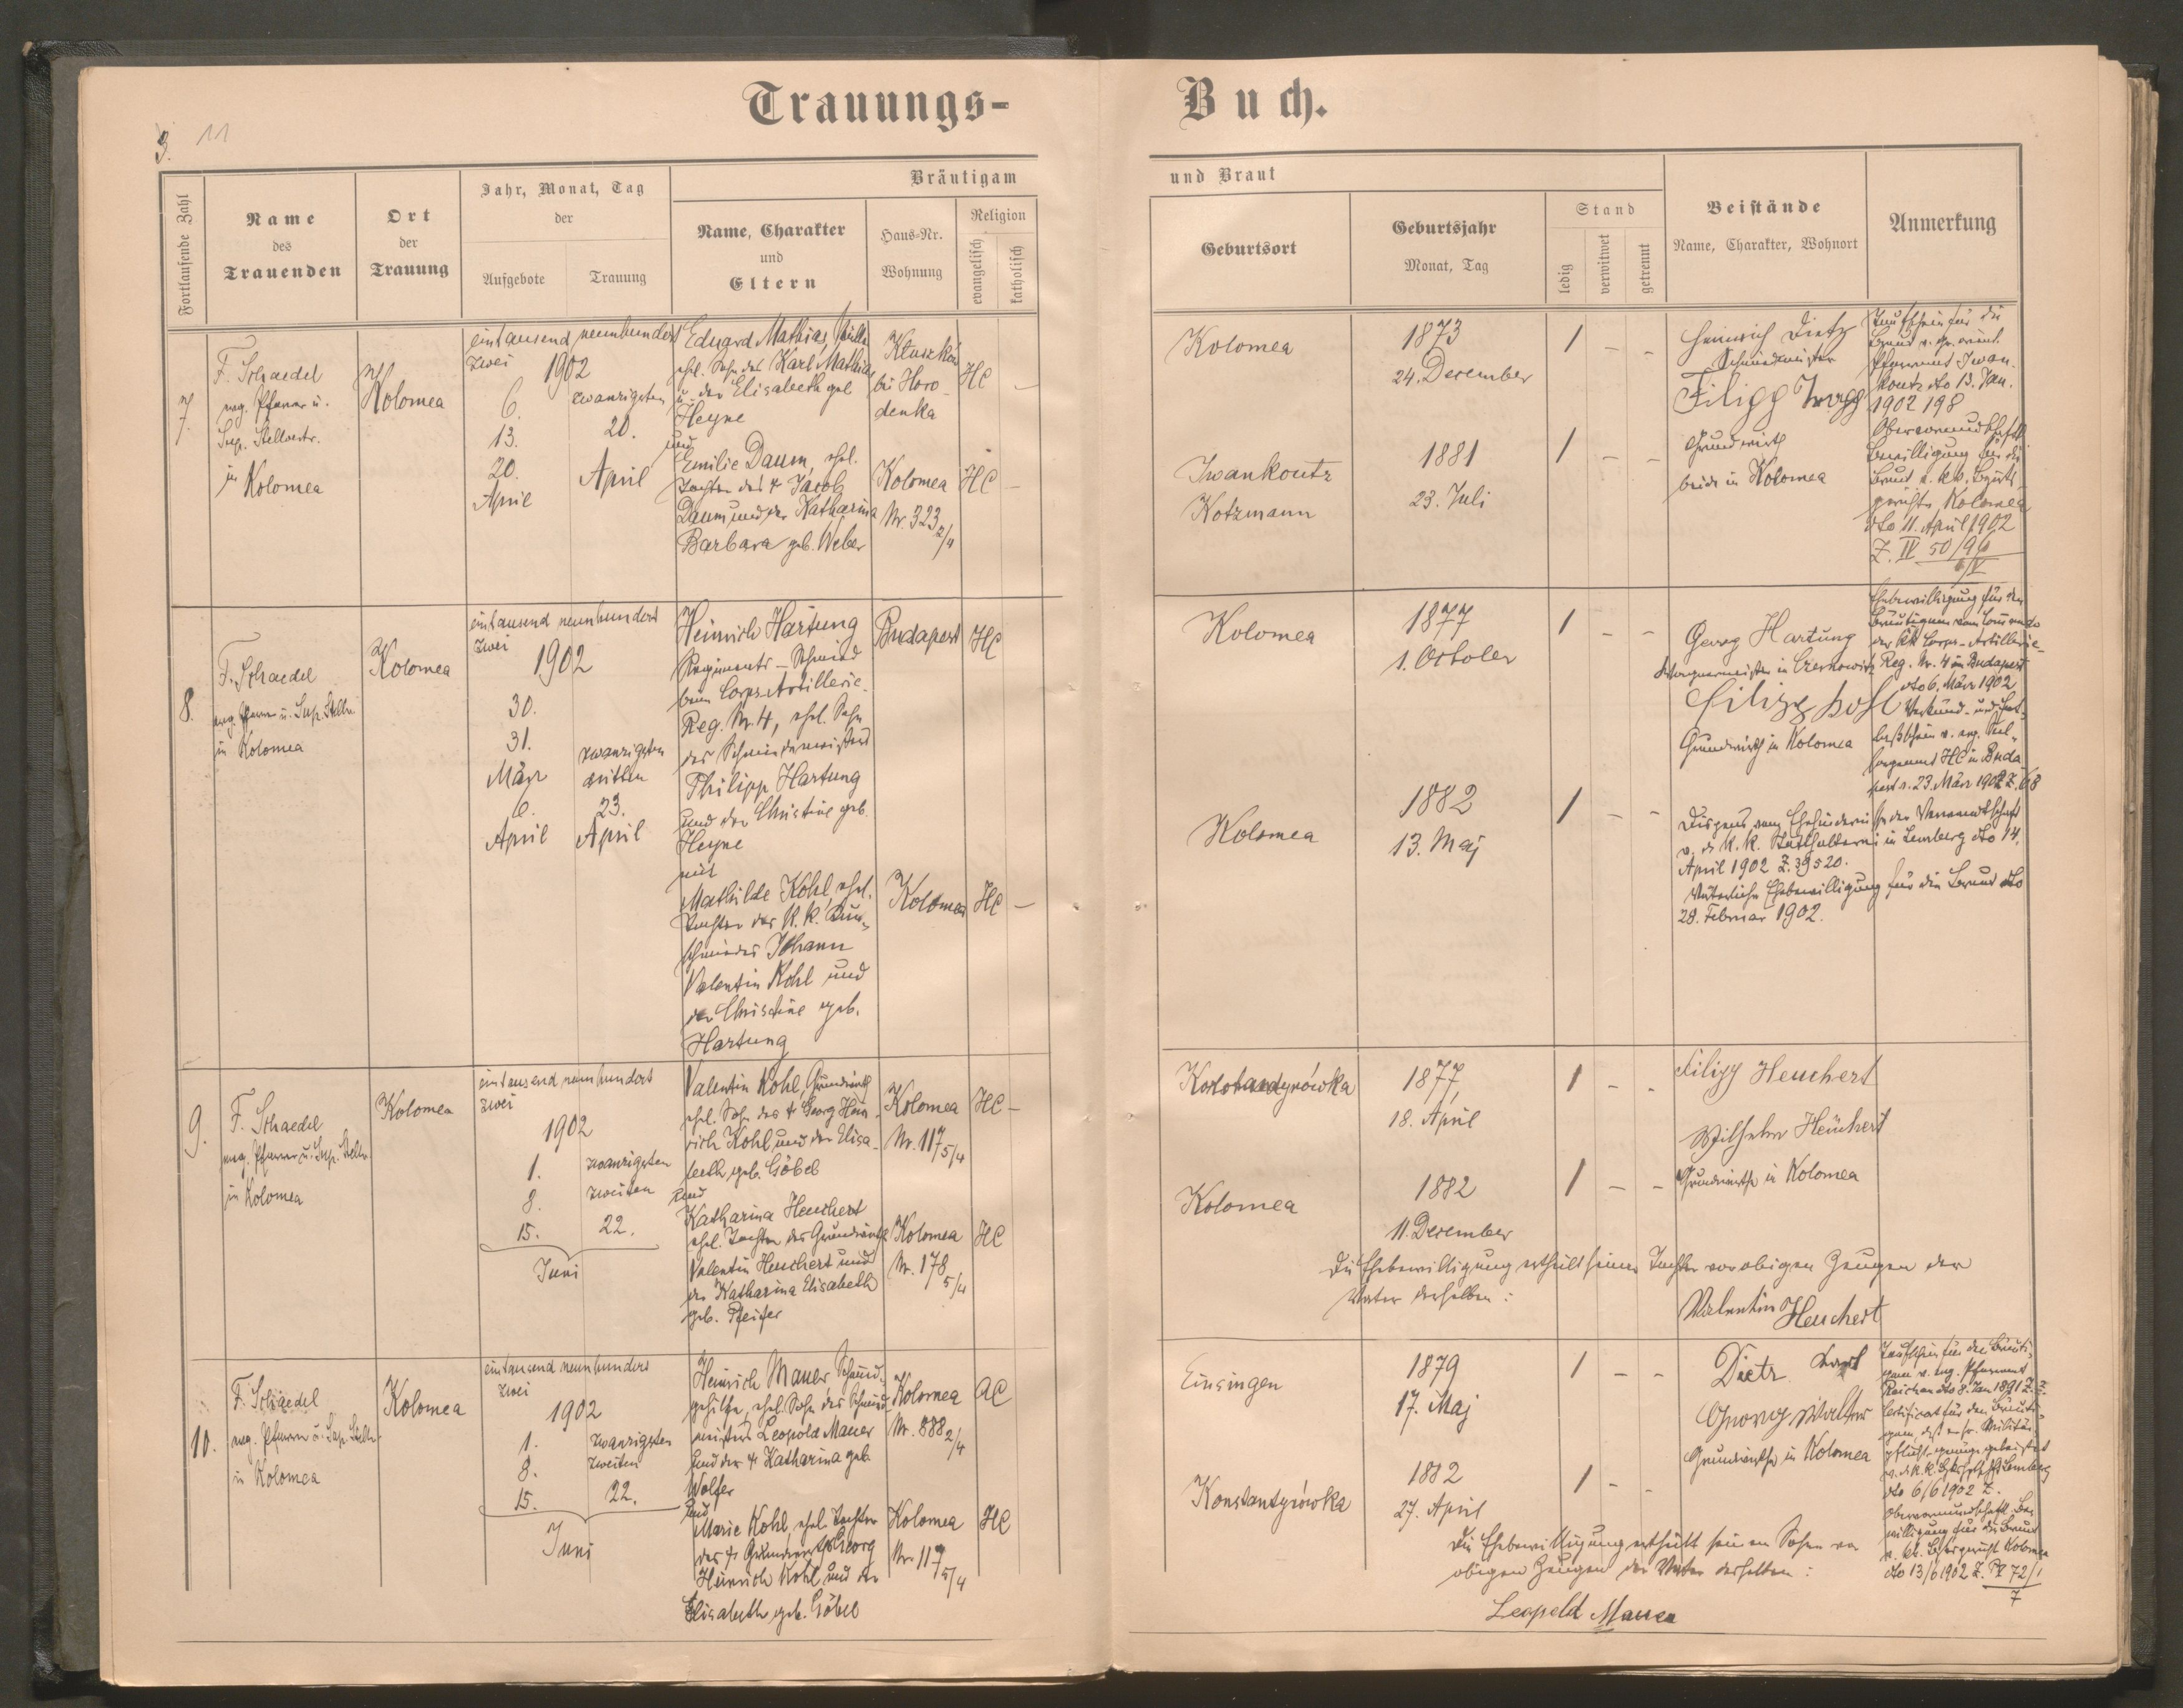 Trauungs-
Buch.
3. 11
Fortlaufende Zahl
Name
des
Trauenden
Ort
der
Trauung
Jahr, Monat, Tag
der
Aufgebote
Trauung
Bräutigam
Name, Charakter
und
Eltern
Haus-Nr.
Wohnung
Religion
evangelisch
katholisch
und Braut
Geburtsort
Geburtsjahr
Monat, Tag
Stand
ledig
verwitwet
getrennt
Beistände
Name, Charakter, Wohnort
Anmerkung
7.
F. Schaedel
evg. Pfarrer u.
Sup. Stellvertr.
in Kolomea
Kolomea
eintausend neunhundert
zwei
1902
6.
13.
20.
April
zwanzigsten
20.
April
Eduard Mathias,
ehl. Sohn des Karl Mathias
u. der Elisabeth geb.
Heyne
und
Emilie Daum, ehel.
Tochter des † Jacob
Daum und der Katharina
Barbara geb. Weber
bei Horo-
denka
HC –
Kolomea
Nr. 323 2/4
HC –
Kolomea
1873
24. December
1 – –
Iwankoutz
Kotzmann
1881
23. Juli
1 – –
Heinrich Dietz
Schmiedmeister
Filipp
Grundwirth
beide in Kolomea
Taufschein für die
Braut v. gr. orient.
Pfarramt Iwan-
koutz dto 13. Jan.
1902 198
Obervormundschaftl.
Bewilligung für die
Braut v. k.k. Bezirks-
gerichte Kolomea
dto 11. April 1902
Z. IV 50/96
8.
F. Schaedel
evg. Pfarrer u. Sup. Stellv.
in Kolomea
Kolomea
eintausend neunhundert
zwei
1902
30.
31.
März
6.
April
zwanzigsten
dritten
23.
April
Heinrich Hartung
Regiments-Schmied
beim Corps-Artillerie-
Reg. Nr. 4, ehel. Sohn
des Schmiedemeisters
Philipp Hartung
und der Christine geb.
Heyne
mit
Mathilde Kohl, ehel.
Tochter des k.k.
schmiedes Johann
Valentin Kohl und
der Christine geb.
Hartung
Budapest
HC
Kolomea
HC –
Kolomea
1877
1. October
1 – –
Kolomea
1882
13. Maj
1 – –
Georg Hartung
Wagnermeister in Czernowitz
Filipp Kohl
Grundwirth in Kolomea
Ehebewilligung für den
Bräutigam vom Commando
des k.k. Corps-Artillerie-
Reg. Nr. 4 in Budapest
dto 6. März 1902
Verkünd- und Ent-
laßschein v. evg. Seel-
sorgeamt HC in Buda-
pest v. 23. März 1902 Z. 68
Dispens vom Ehehindernisse der Verwandtschaft
v. d. k.k. Statthalterei in Lemberg dto 14.
April 1902 Z. 39520.
Väterliche Ehebewilligung für die Braut dto
28. Februar 1902.
9.
F. Schaedel
evg. Pfarrer u. Sup. Stellv.
in Kolomea
Kolomea
eintausend neunhundert
zwei
1902
1.
8.
15.
zwanzigsten
zweiten
22.
Juni
Valentin Kohl, Grundwirth
ehel. Sohn des † Georg Hein-
rich Kohl und der Elisa-
beth geb. Göbel
und
Katharina Heuchert
ehel. Tochter des Grundwirth
Valentin Heuchert und
der Katharina Elisabeth
geb. Pfeifer
Kolomea
Nr. 117 5/4
HC –
Kolomea
Nr. 178 5/4
HC
1877,
18. April
1 – –
Kolomea
1882
11. December
1 – –
Filipp Heuchert
Wilhelm Heuchert
Grundwirthe in Kolomea
Die Ehebewilligung ertheilt seiner Tochter vor obigen Zeugen der
Vater derselben:
Valentin Heuchert
10.
F. Schaedel
evg. Pfarrer u. Sup. Stellv.
in Kolomea
Kolomea
eintausend neunhundert
zwei
1902
1.
8.
15.
zwanzigsten
zweiten
22.
Juni
Heinrich Mauer Schmied-
gehilfe, ehel. Sohn des Schmied-
meisters Leopold Mauer
und der † Katharina geb.
Wolfer
und
Marie Kohl, ehel. Tochter
des † Grundwirths Georg
Heinrich Kohl und der
Elisabeth geb. Göbel
Kolomea
Nr. 888 2/4
AC
Kolomea
Nr. 117 5/4
HC
Einsingen
1879
17. Maj
1 – –
Konstantynówka
1882
27. April
1 – –
Dietz Karl
Georg Walter
Grundwirthe in Kolomea
Taufschein für den Bräuti-
gam v. evg. Pfarramt
Reichau dto 8. Jan 1891 Z. 2.
Certificat für den Bräuti-
gam, daß er sr. Militär-
pflicht genüge geleistet
dto 6/6 1902 Z.
Obervormundschaftl. Be-
willigung für die Braut
v. k.k. Bezirksgericht Kolomea
dto 13/6 1902 Z. 72/1
7
Die Ehebewilligung ertheilt seinem Sohne vor
obigen Zeugen der Vater desselben:
Leopold Mauer